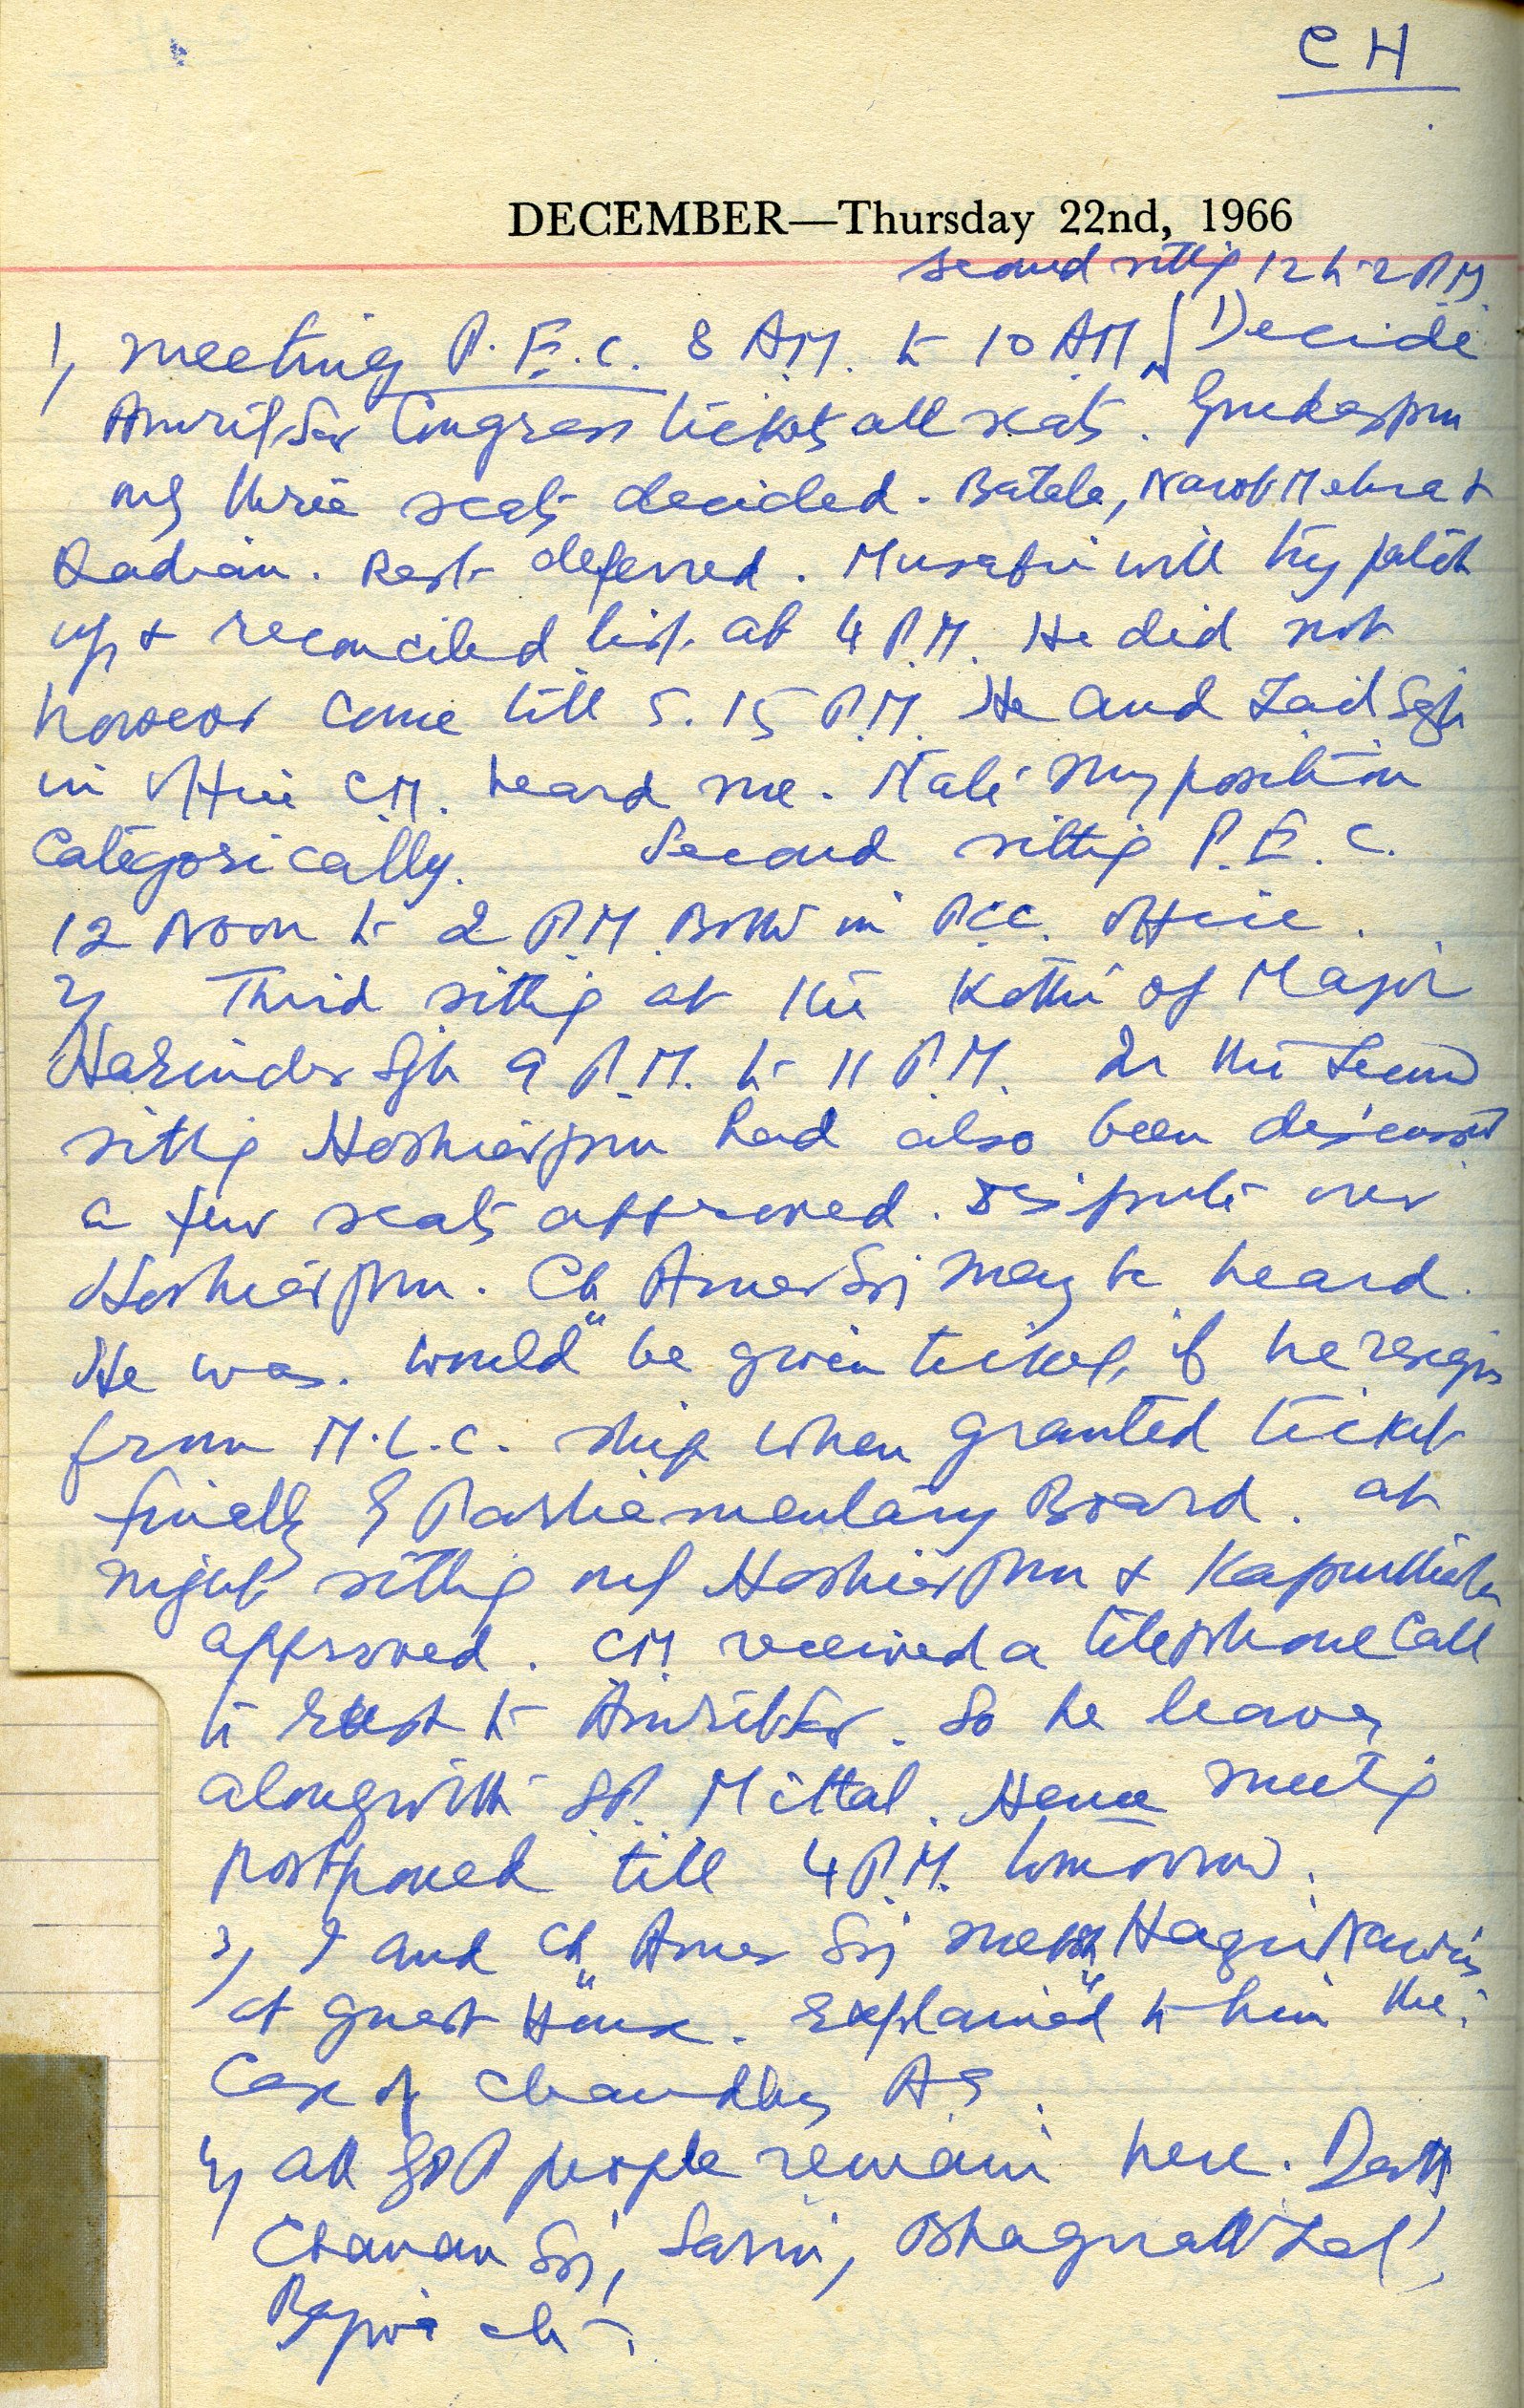 CH
DECEMBER—Thursday 22nd, 1966
second sitting 12 to 2 P.M.
1) meeting P.E.C. 8 A.M. to 10 AM Decide
Amritsar Congress tickets all seats. Gurdaspur
only three seats decided. Batala, Narot Mehra &
Qadian. Rest deferred. Musafir will try patch
up & reconciled list at 4 P.M. He did not
however come till 5.15 P.M. He and Zail Sgh
in office CM. heard me. State my position
Categorically. Second sitting P.E.C.
12 Noon to 2 P.M. Both in P.C.C. office.
2) Third sitting at the Kothi of Major
Harinder Sgh 9 P.M. to 11 P.M. In the second
sitting Hoshiarpur had also been discussed
a few seats approved. Dispute over
Hoshiarpur. Ch Amar Sgh may be heard.
He was. would be given ticket, if he resigns
from M.L.C. ship when granted ticket
finally by Parliamentary Board. at
night sitting only Hoshiarpur & Kapurthala
approved. CM received a telephone Call
to to Amritsar. So he leaves
alongwith S.P. Mittal. Hence meeting
postponed till 4 P.M. tomorrow.
3) I and Ch Amar Sgh
at guest House. Explained to him the
Case of Chaudhry AS.
4) all people remain here.
Chanan Sgh, Sarin, Lal,